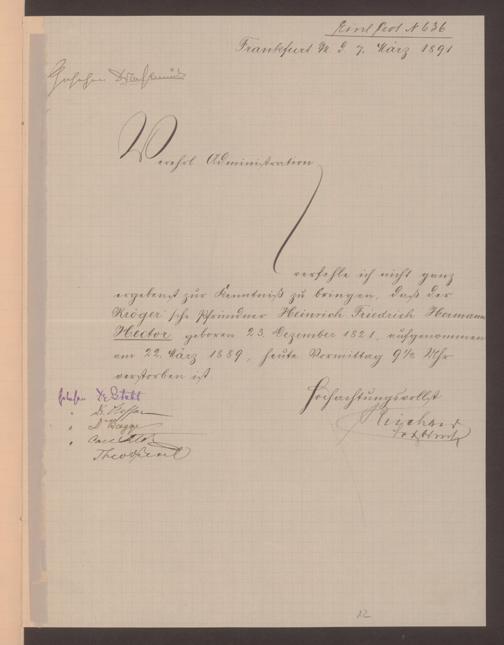 Eint Prot N 636
Frankfurt M d 7. März 1891
Gesehen
Verehrl Administration
verfehle ich nicht ganz
ergebenst zur Kenntniß zu bringen, daß der
Kröger'sche Pfründner Heinrich Friedrich Hermann
Hector geboren 23. Dezember 1821, aufgenommen
am 22. März 1889, heute Vormittag 9½ Uhr
verstorben ist
Hochachtungsvollst
gesehen